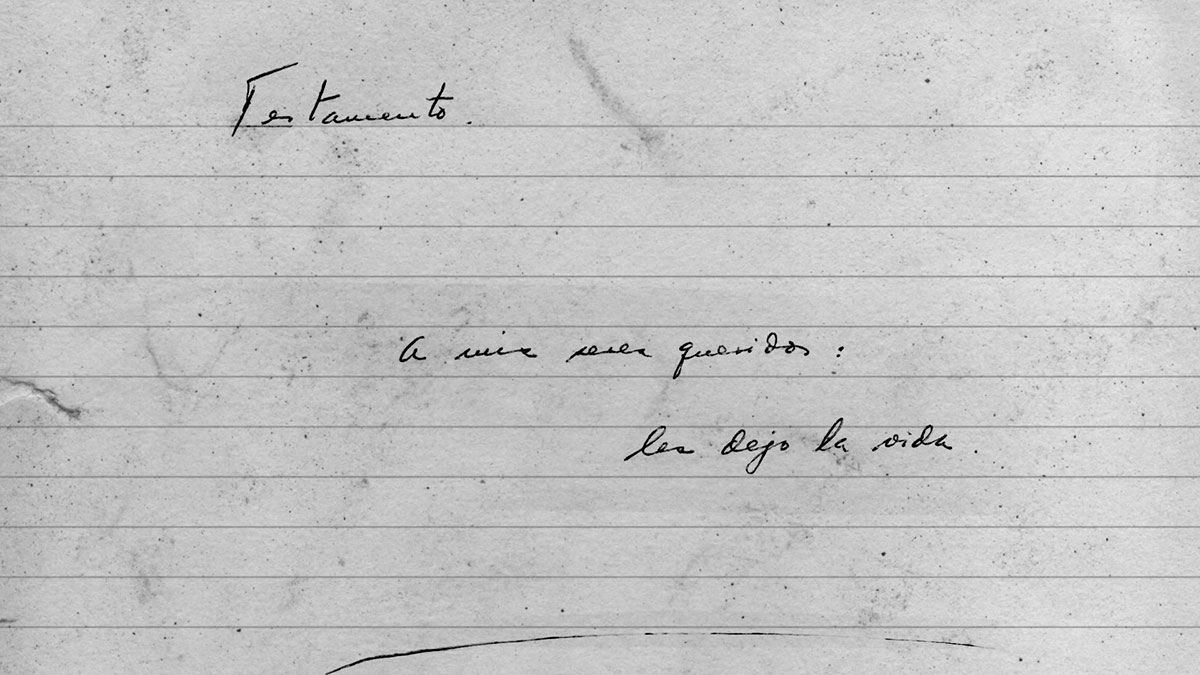 Testamento.
A mis seres queridos:
les dejo la vida.